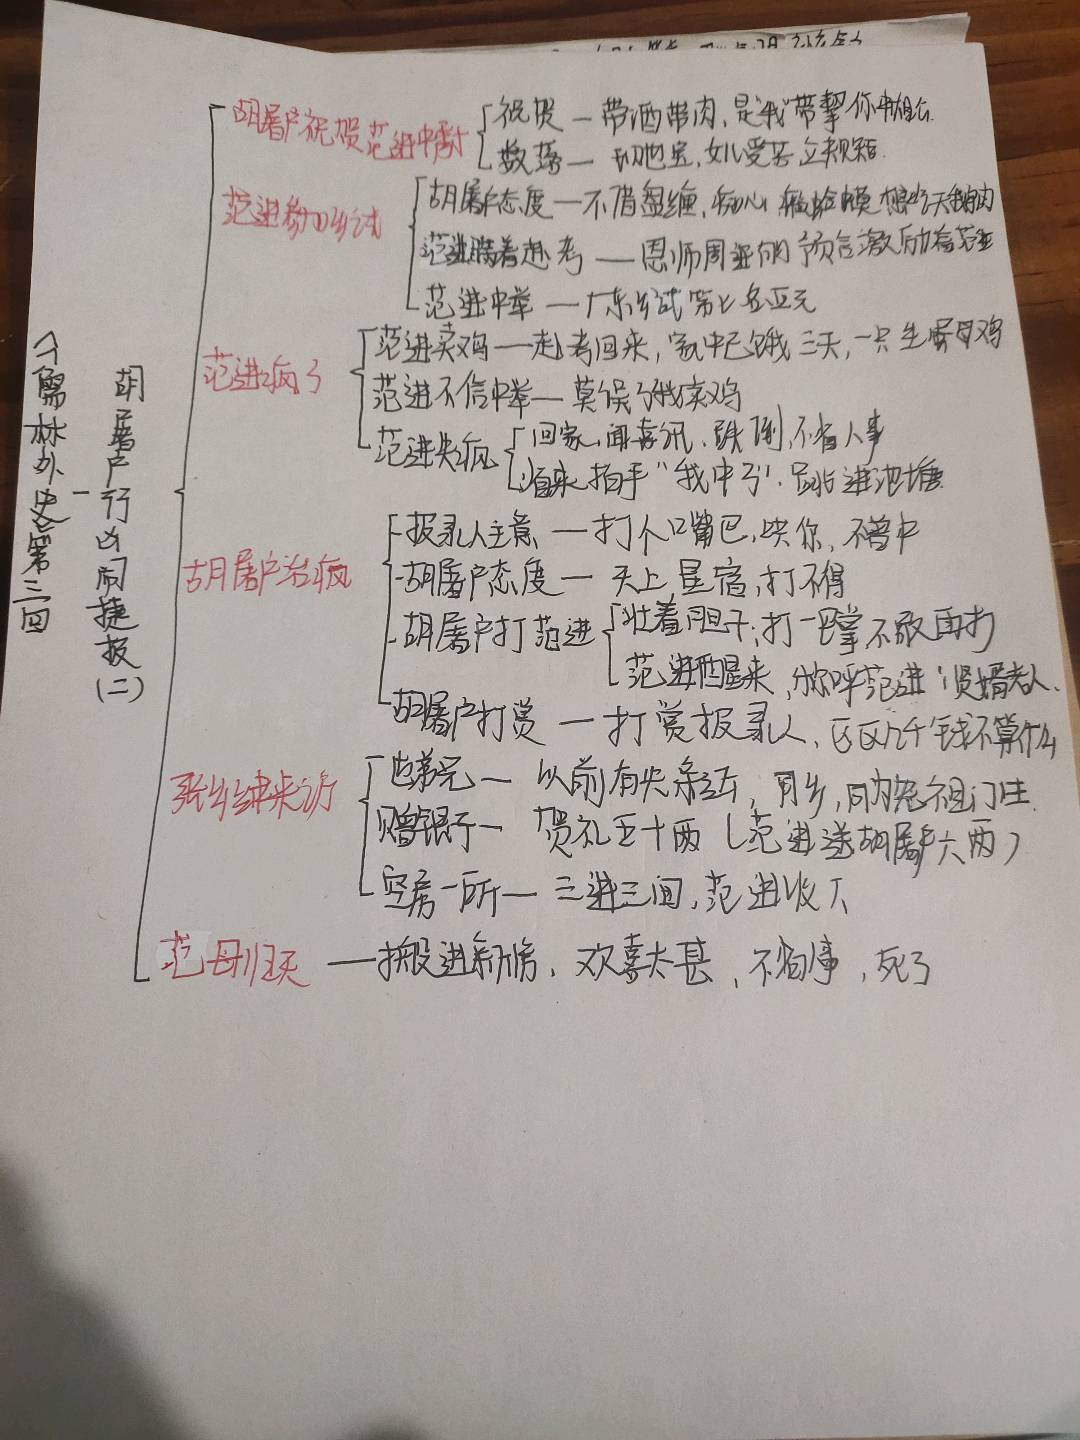 《儒林外史》第三回
胡屠户行凶闹捷报(二)
胡屠户祝贺范进中秀才
祝贺—带酒带肉,是我带挈你中相公
数落—现世宝,女儿受苦,立规矩
范进参加乡试
胡屠户态度—不借盘缠,癞蛤蟆想吃天鹅肉
范进瞒着赴考——恩师周进的预言激励着范进
范进中举—广东乡试第七名亚元
范进疯了
范进卖鸡——赴考回来,家中已饿三天,一只生蛋母鸡
范进不信中举—莫误了我卖鸡
范进失疯
回家,闻喜讯,跌倒,不省人事
醒来拍手“我中了”,跳进池塘
胡屠户治疯
报录人主意—打个嘴巴,哄你,不曾中
胡屠户态度—天上星宿,打不得
胡屠户打范进
壮着胆子,打一巴掌,不敢再打
范进醒来,称呼范进“贤婿老人
胡屠户打赏—打赏报录人,区区几千钱不算什么
张乡绅来访
世弟兄—以前有失亲近,同乡,同为恩祖门生
赠银子—贺礼五十两(范进送胡屠户六两)
空房一所—三进三间,范进收下
范母归天—搬进新房,欢喜太甚,不省人事,死了